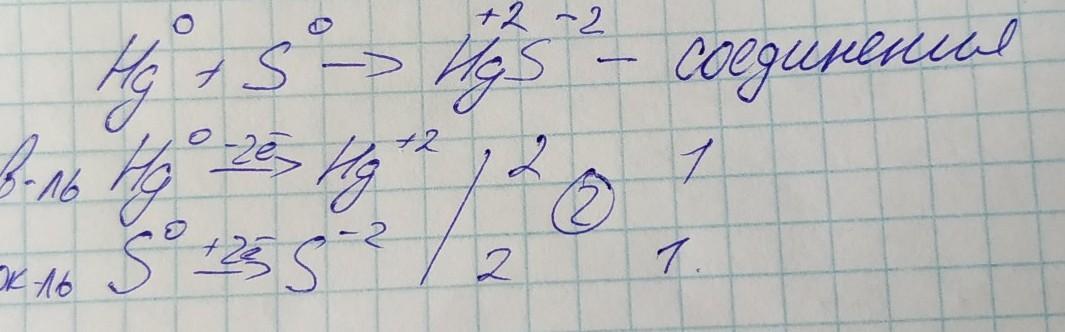 Hg⁰ + S⁰ → Hg⁺²S⁻² – соединения
в-ль Hg⁰ -2ē→ Hg⁺² | 2 ② 1
ок-ль S⁰ +2ē→ S⁻² | 2 1.